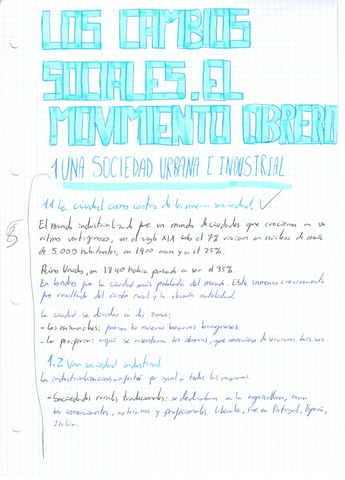 LOS CAMBIOS
SOCIALES. EL
MOVIMIENTO OBRERO
1 UNA SOCIEDAD URBANA E INDUSTRIAL
1.1 La ciudad como centro de la nueva sociedad.
El mundo industrializado fue un mundo de ciudades que crecieron a un
ritmo vertiginoso, en el siglo XIX solo el 7% vivían en núcleos de más
de 5.000 habitantes, en 1900 eran ya el 25%.
Reino Unido, en 1840 había pasado a ser el 35%.
En Londres que la ciudad más poblada del mundo. Este inmenso crecimiento
fue resultado del éxodo rural y la elevada natalidad.
La ciudad se dividía en dos zonas:
- Los ensanches: fueron los nuevos barrios burgueses.
- La periferia: aquí se asentaron los obreros, que carecían de servicios básicos.
1.2 Una sociedad industrial.
La industrialización no afectó por igual a todas las regiones.
- Sociedades rurales tradicionales: se dedicaban a la agricultura, eran
los comerciantes, artesanos y profesionales liberales, fue en Portugal, España,
Italia.